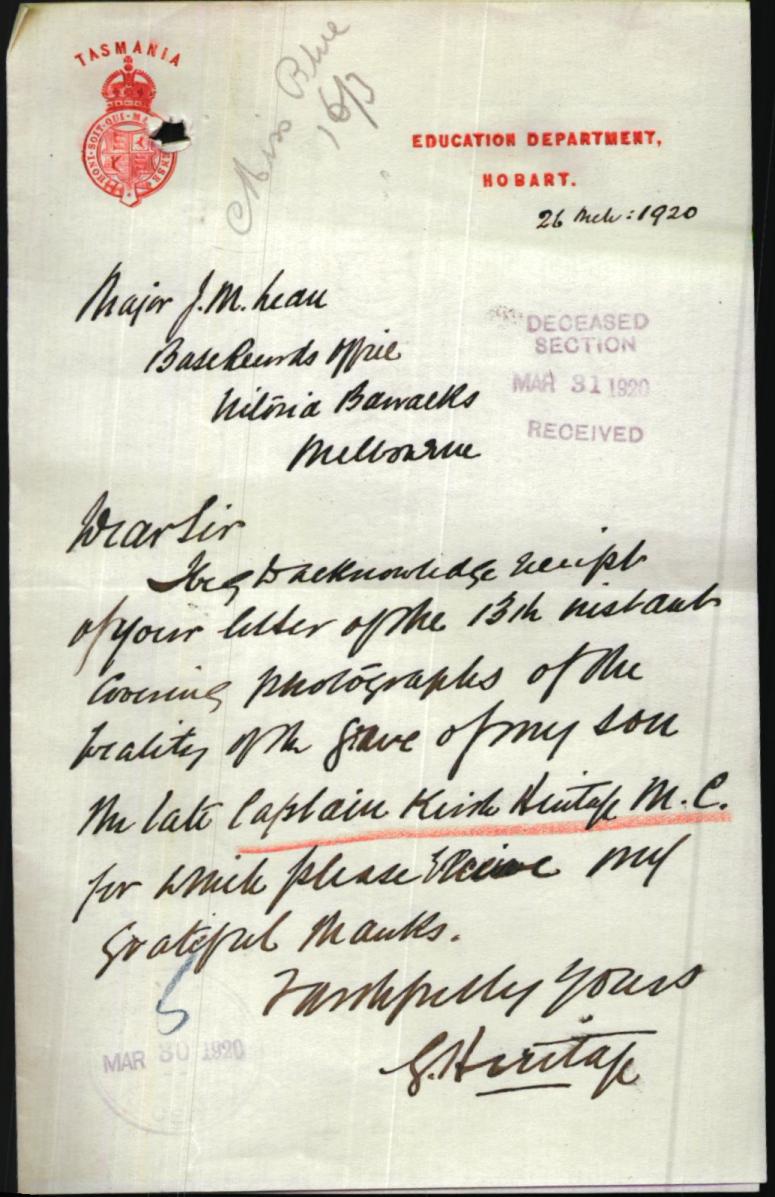 TASMANIA
HONI·SOIT·QUI·M
Miss Blue
16/3
EDUCATION DEPARTMENT,
HOBART.
26 Mch: 1920
Major J. M. Lean
Base Records Office
Victoria Barracks
Melbourne
DECEASED
SECTION
MAR 31 1920
RECEIVED
Dear Sir
I beg to acknowledge receipt
of your letter of the 13th instant
covering photographs of the
locality of the grave of my son
the late Captain Keith Heritage M.C.
for which please receive my
grateful thanks.
Faithfully Yours
G. Heritage
MAR 30 1920